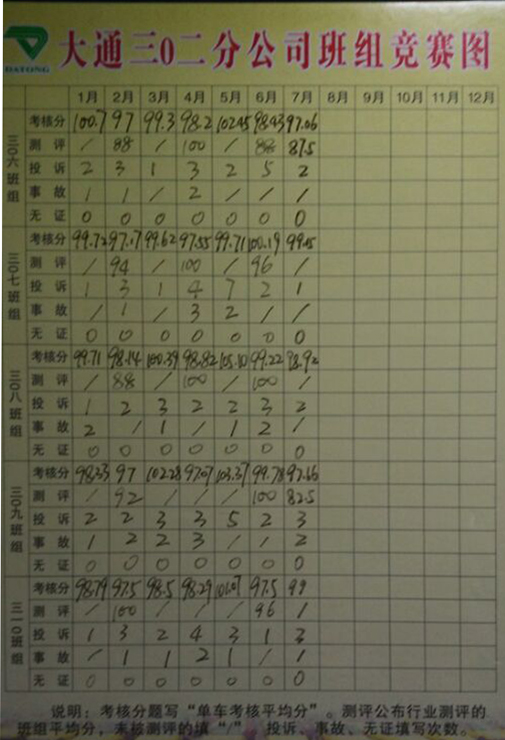 DATONG
大通三0二分公司班组竞赛图
1月 2月 3月 4月 5月 6月 7月 8月 9月 10月 11月 12月
三〇六班组
考核分 100.7 97 99.3 98.2 102.45 98.93 97.06
测评 / 88 / 100 / 88 87.5
投诉 2 3 1 3 2 5 2
事故 1 1 / 2 / / /
无证 0 0 0 0 0 0 0
三〇七班组
考核分 99.72 97.17 99.62 97.55 99.71 100.19
测评 / 94 / 100 / 96 /
投诉 1 3 1 4 7 2 1
事故 / 1 / 3 2 / /
无证 0 0 0 0 0 0 0
三〇八班组
考核分 99.71 98.14 100.39 98.82 105.10 99.22 98.92
测评 / 88 / 100 / 100 /
投诉 1 2 3 2 2 3 2
事故 2 / 1 / 1 2 /
无证 0 0 0 0 0 0 0
三〇九班组
考核分 98.33 97 102.28 97.07 103.37 99.78 97.66
测评 / 92 / / / 100 82.5
投诉 2 2 3 3 5 2 3
事故 1 2 2 3 / / 2
无证 0 0 0 0 0 0 0
三一〇班组
考核分 98.79 97.5 98.5 98.29 101.07 97.5 99
测评 / 100 / / / 96 /
投诉 1 3 2 4 3 1 2
事故 / 1 1 2 1 / 1
无证 0 0 0 0 0 0 0
说明：考核分题写“单车考核平均分”。测评公布行业测评的
班组平均分，未被测评的填“/”。投诉、事故、无证填写次数。